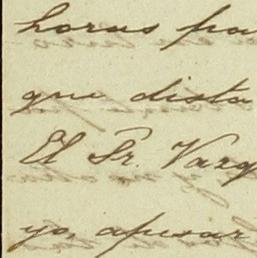 horas pa
que dista
El Sr. Vazq
yo, apesar